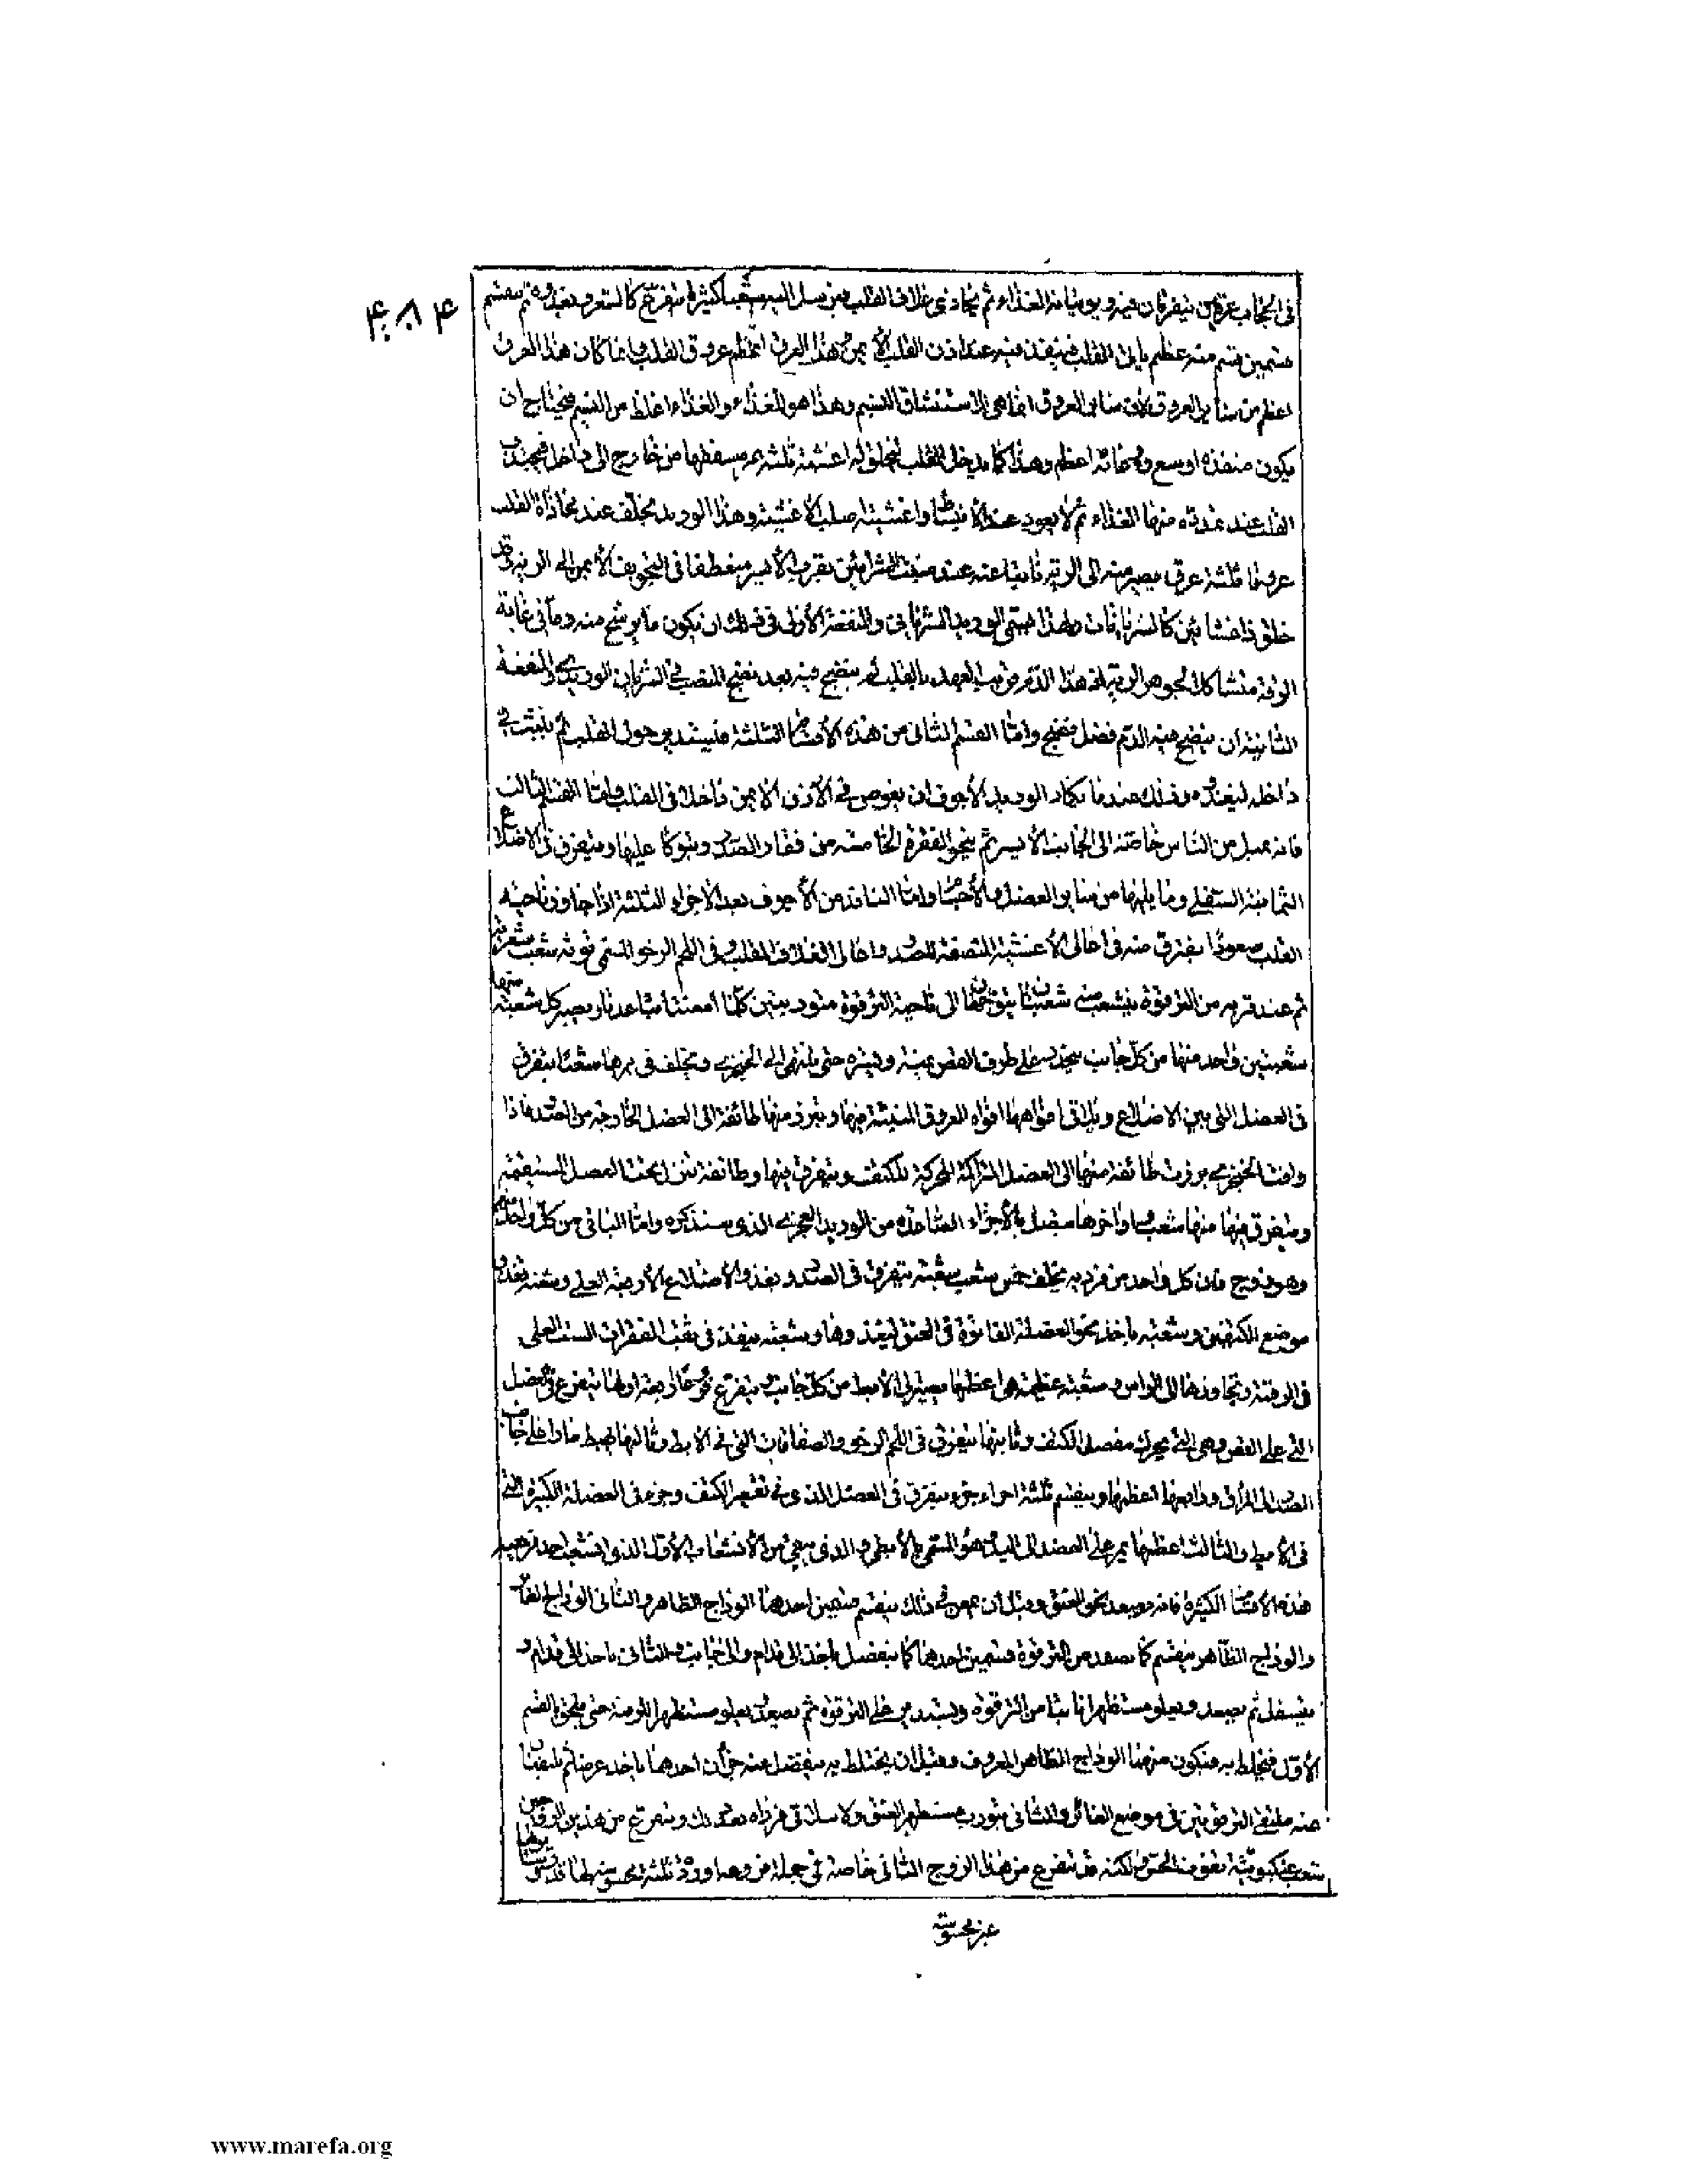 ۴۰۸۴
في الحجاب عرقين يتفرقان فيه ويوتيانه الغذاء ثم يحاذى غلاف القلب فيرسل اليه شعبا كثيرة يتفرع كالشعر ويغذوه ثم ينقسم
قسمين قسم منه عظيم ياتى القلب فينفذ فيه عند اذن القلب الأيمن وهذا العرق اعظم عروق القلب وانما كان هذا العرق
اعظم من سائر العروق لأن سائر العروق انما هى لاستنشاق النسيم وهذا هو للغذاء والغذاء اغلظ من النسيم فيحتاج ان
يكون منفذه اوسع ووعائه اعظم وهذا كما يدخل القلب يتخلق له اغشية ثلثة مسقفها من خارج الى داخل فيجتذب
القلب عند تمدده منها الغذاء ثم لا يعود عند الأنبساط واغشيته اصلب الأغشية وهذا الوريد يخلف عند محاذاة القلب
عروقا ثلثة عرق يصير منه الى الرئة ناتيا عنه عند منبت الشرائين بقرب الأيسر منعطفا في التجويف الأيمن الى الرئة وقد
خلق ذا غشائين كالشريانات ولهذا يسمى الوريد الشرياني والمنفعة الأولى في ذلك ان يكون ما يرشح منه دما في غاية
الرقة مشاكلا لجوهر الرئة اذ هذا الدم قريب العهد بالقلب لم ينضج فيه بعد نضج المنصب في الشريان الوريدي والمنفعة
الثانية ان ينضج فيه الدم فضل نضج واما القسم الثاني من هذه الأقسام الثلثة فيستدير حول القلب ثم ينبث في
داخله ليغذوه وذلك عند ما يكاد الوريد الأجوف ان يغوص في الأذن الايمن داخلا في القلب واما القسم الثالث
فانه يميل من الناس خاصة الى الجانب الأيسر ثم ينحو نحو الفقرة الخامسة من فقار الصدر ويتوكا عليها ويتفرق في الاضلاع
الثمانية السفلى وما يليها من سائر العضل والأجسام واما النافذ من الأجوف بعد الأجزاء الثلثة اذا جاوز ناحية
القلب صعودا يتفرق منه في اعالي الأغشية المنصفة للصدر واعالي الغلاف للقلب وفي اللحم الرخو المسمى توثه شعب شعرية
ثم عند قربه من الترقوة يتشعب منه شعبتان يتوجهان الى ناحية الترقوة متوربتين كلما امعنتا تباعدتا ويصير كل شعبة منها
شعبتين واحد منها من كل جانب ينحدر على طرف القص يمنة ويسرة حتى ينتهى الى الحنجري ويخلف في ممرها شعبا يتفرق
في العضل التي بين الاضلاع ويلاقي افواهها افواه العروق المنبثة فيها ويبرز منها طائفة الى العضل الخارجة من الصدر فاذا
وافت الحنجري برزت طائفة منها الى العضل المتراكمة المحركة للكتف ويتفرق فيها وطائفة تنزل تحت العضل المستقيمة
ويتفرق فيها منها شعب واواخرها متصل بالأجزاء الصاعدة من الوريد العجزي الذي سنذكره واما الباقي من كل واحد منهما
وهو زوج فان كل واحد من فرديه يخلف خمس شعب شعبة يتفرق في الصدر ويغذو الأضلاع الأربعة العلي وشعبة يغذو
موضع الكتفين وشعبة ياخذ نحو العضلة الغائرة في العنق ليغذوها وشعبة ينفذ في ثقب الفقرات الست العلى
في الرقبة ويجاوزها الى الراس وشعبة عظيمة هي اعظمها يصير الى الأبط من كل جانب ويتفرع فروعا اربعة اولها يتفرع في العضل
التي على القص وهي التي يحرك مفصل الكتف وثانيها يتفرق في اللحم الرخو والصفاقات التي في الأبط وثالثها يهبط مارا على جانب
الصدر الى المراق ورابعها اعظمها وينقسم ثلثة اجزاء جزء يتفرق في العضل الذي في تقعير الكتف وجزء في العضلة الكبيرة التي
في الأبط والثالث اعظمها يمر على العضد الى اليد وهو المسمى بالأبطي والذي يبقى من الأنشعاب الأول الذي انشعب احد فرعيه
هذه الأقسام الكثيرة فانه يصعد نحو العنق وقبل ان يمعن في ذلك ينقسم قسمين احدهما الوداج الظاهر والثاني الوداج الغائر
والوداج الظاهر ينقسم كما يصعد من الترقوة قسمين احدهما كما ينفصل ياخذ الى قدام والى جانب والثاني ياخذ الى قدام و
يتسفل ثم يصعد ويعلو مستظهرا ناتيا من الترقوة ويستدير على الترقوة ثم يصعد ويعلو مستظهرا للرقبة حتى يلحق بالقسم
الأول فيختلط به فيكون منهما الوداج الظاهر المعروف وقبل ان يختلط به ينفصل عنه جزآن احدهما ياخذ عرضا ثم يلتقيان
عند ملتقى الترقوتين في موضع الغائر والثاني يتورب مستظهر العنق ولا يتلاقى فرداه بعد ذلك ويتفرع من هذين الزوجين
شعب عنكبوتية تفوت الحس ولكنه قد يتفرع من هذا الزوج الثاني خاصة في جملة فروعه اوردة ثلثة محسوسة لها قدر وسائرها
غير محسوسة
www.marefa.org